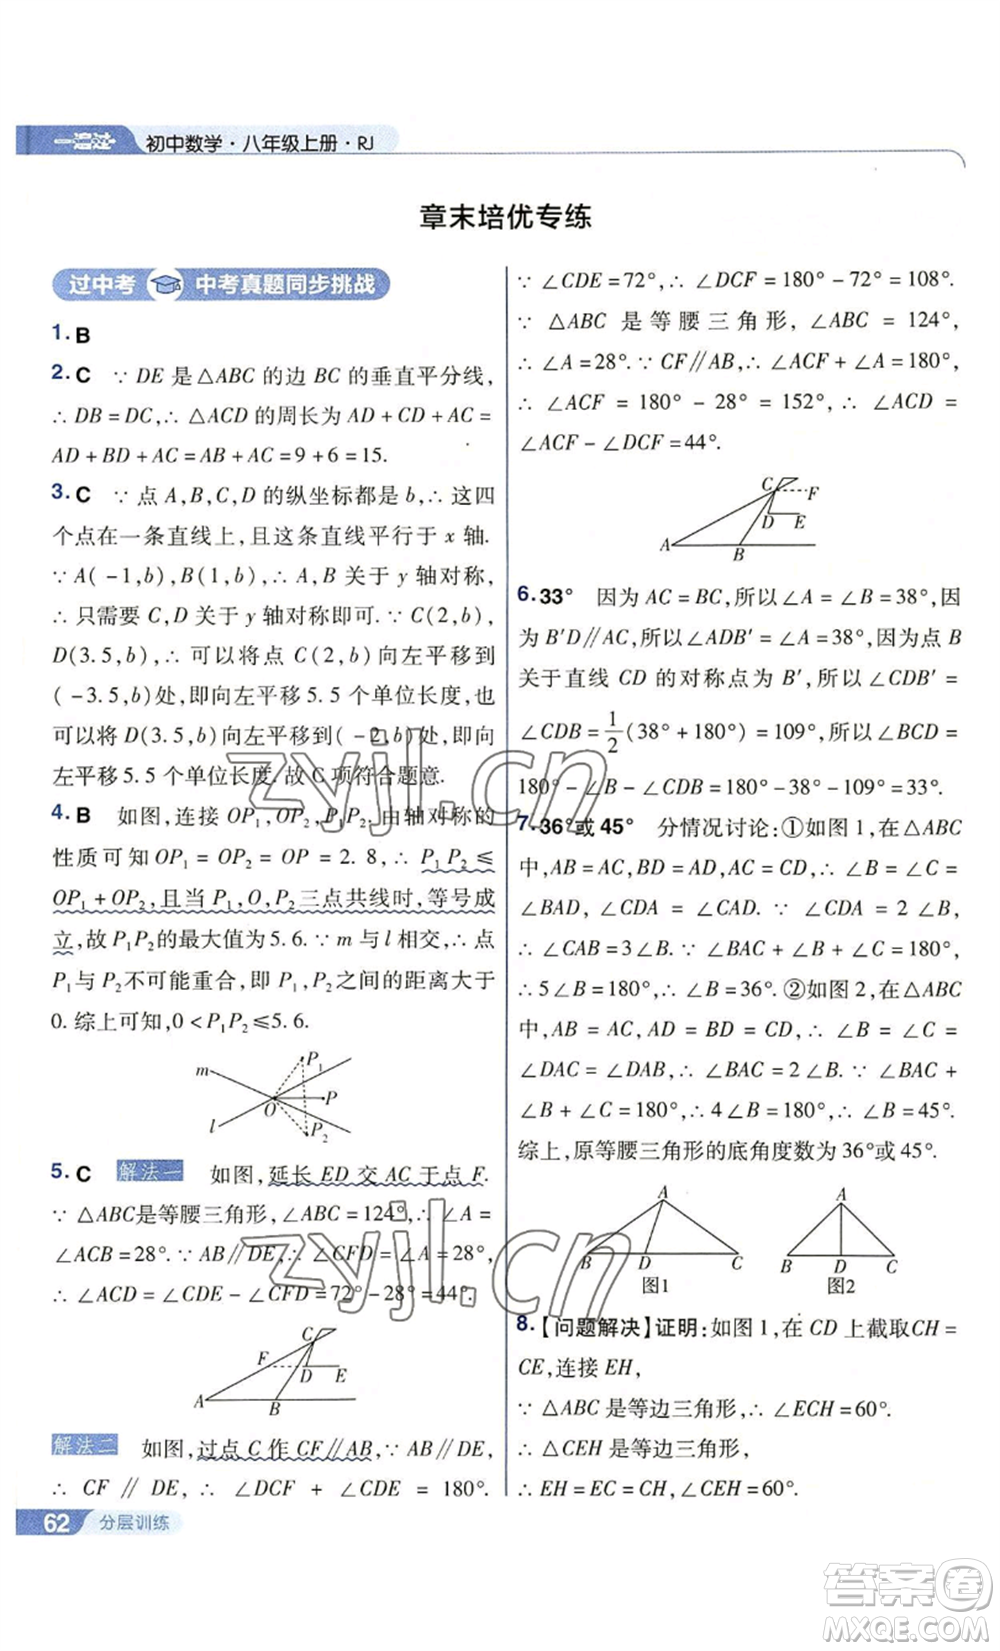 一遍过 初中数学·八年级上册·RJ
章末培优专练
过中考 中考真题同步挑战
1. B
2. C ∵ DE 是△ABC 的边 BC 的垂直平分线,
∴ DB = DC,∴ △ACD 的周长为 AD + CD + AC =
AD + BD + AC = AB + AC = 9 + 6 = 15.
3. C ∵ 点 A,B,C,D 的纵坐标都是 b,∴ 这四
个点在一条直线上,且这条直线平行于 x 轴.
∵ A( -1,b),B(1,b),∴ A,B 关于 y 轴对称,
∴ 只需要 C,D 关于 y 轴对称即可.∵ C(2,b),
D(3.5,b),∴ 可以将点 C(2,b)向左平移到
( -3.5,b)处,即向左平移 5.5 个单位长度,也
可以将 D(3.5,b)向左平移到( -2,b)处,即向
左平移 5.5 个单位长度.故 C 项符合题意.
4. B 如图,连接 OP₁,OP₂,P₁P₂.由轴对称的
性质可知 OP₁ = OP₂ = OP = 2.8,∴ P₁P₂ ≤
OP₁ + OP₂,且当 P₁,O,P₂ 三点共线时,等号成
立,故 P₁P₂ 的最大值为 5.6.∵ m 与 l 相交,∴ 点
P₁与 P₂ 不可能重合,即 P₁P₂ 之间的距离大于
0.综上可知,0 < P₁P₂ ≤5.6.
m P₁
O P
l P₂
5. C 解法一 如图,延长 ED 交 AC 于点 F.
∵ △ABC是等腰三角形,∠ABC = 124°,∴ ∠A =
∠ACB = 28°.∵ AB∥DE,∴ ∠CFD = ∠A = 28°,
∴ ∠ACD = ∠CDE - ∠CFD = 72° - 28° = 44°.
C
F D E
A B
解法二 如图,过点 C 作 CF∥AB,∵ AB∥DE,
∴ CF ∥ DE, ∴ ∠CDE + ∠DCF = 180°.
∵ ∠CDE = 72°,∴ ∠DCF = 180° - 72° = 108°.
∵ △ABC 是等腰三角形, ∠ABC = 124°,
∴ ∠A = 28°.∵ CF∥AB,∴ ∠ACF + ∠A = 180°,
∴ ∠ACF = 180° - 28° = 152°, ∴ ∠ACD =
∠ACF - ∠DCF = 44°.
C F
D E
A B
6. 33° 因为 AC = BC,所以∠A = ∠B = 38°,因
为 B′D∥AC,所以∠ADB′ = ∠A = 38°,因为点 B
关于直线 CD 的对称点为 B′,所以∠CDB′ =
∠CDB = 1/2(38° + 180°) = 109°,所以∠BCD =
180° - ∠B - ∠CDB = 180° - 38° - 109° = 33°.
7. 36°或 45° 分情况讨论:①如图 1,在△ABC
中,AB = AC,BD = AD,AC = CD,∴ ∠B = ∠C =
∠BAD, ∠CDA = ∠CAD. ∵ ∠CDA = 2 ∠B,
∴ ∠CAB = 3∠B. ∵ ∠BAC + ∠B + ∠C = 180°,
∴ 5∠B = 180°,∴ ∠B = 36°.②如图 2,在△ABC
中,AB = AC,AD = BD = CD,∴ ∠B = ∠C =
∠DAC = ∠DAB,∴ ∠BAC = 2∠B. ∵ ∠BAC +
∠B + ∠C = 180°,∴ 4∠B = 180°,∴ ∠B = 45°.
综上,原等腰三角形的底角度数为 36°或 45°.
A A
B D C B D C
图1 图2
8. 【问题解决】证明:如图 1,在 CD 上截取CH =
CE,连接 EH,
∵ △ABC 是等边三角形,∴ ∠ECH = 60°.
∴ △CEH 是等边三角形,
∴ EH = EC = CH,∠CEH = 60°.
62 分层训练
zyjl.cn
zyjl.cn
答案卷
MXQE.COM